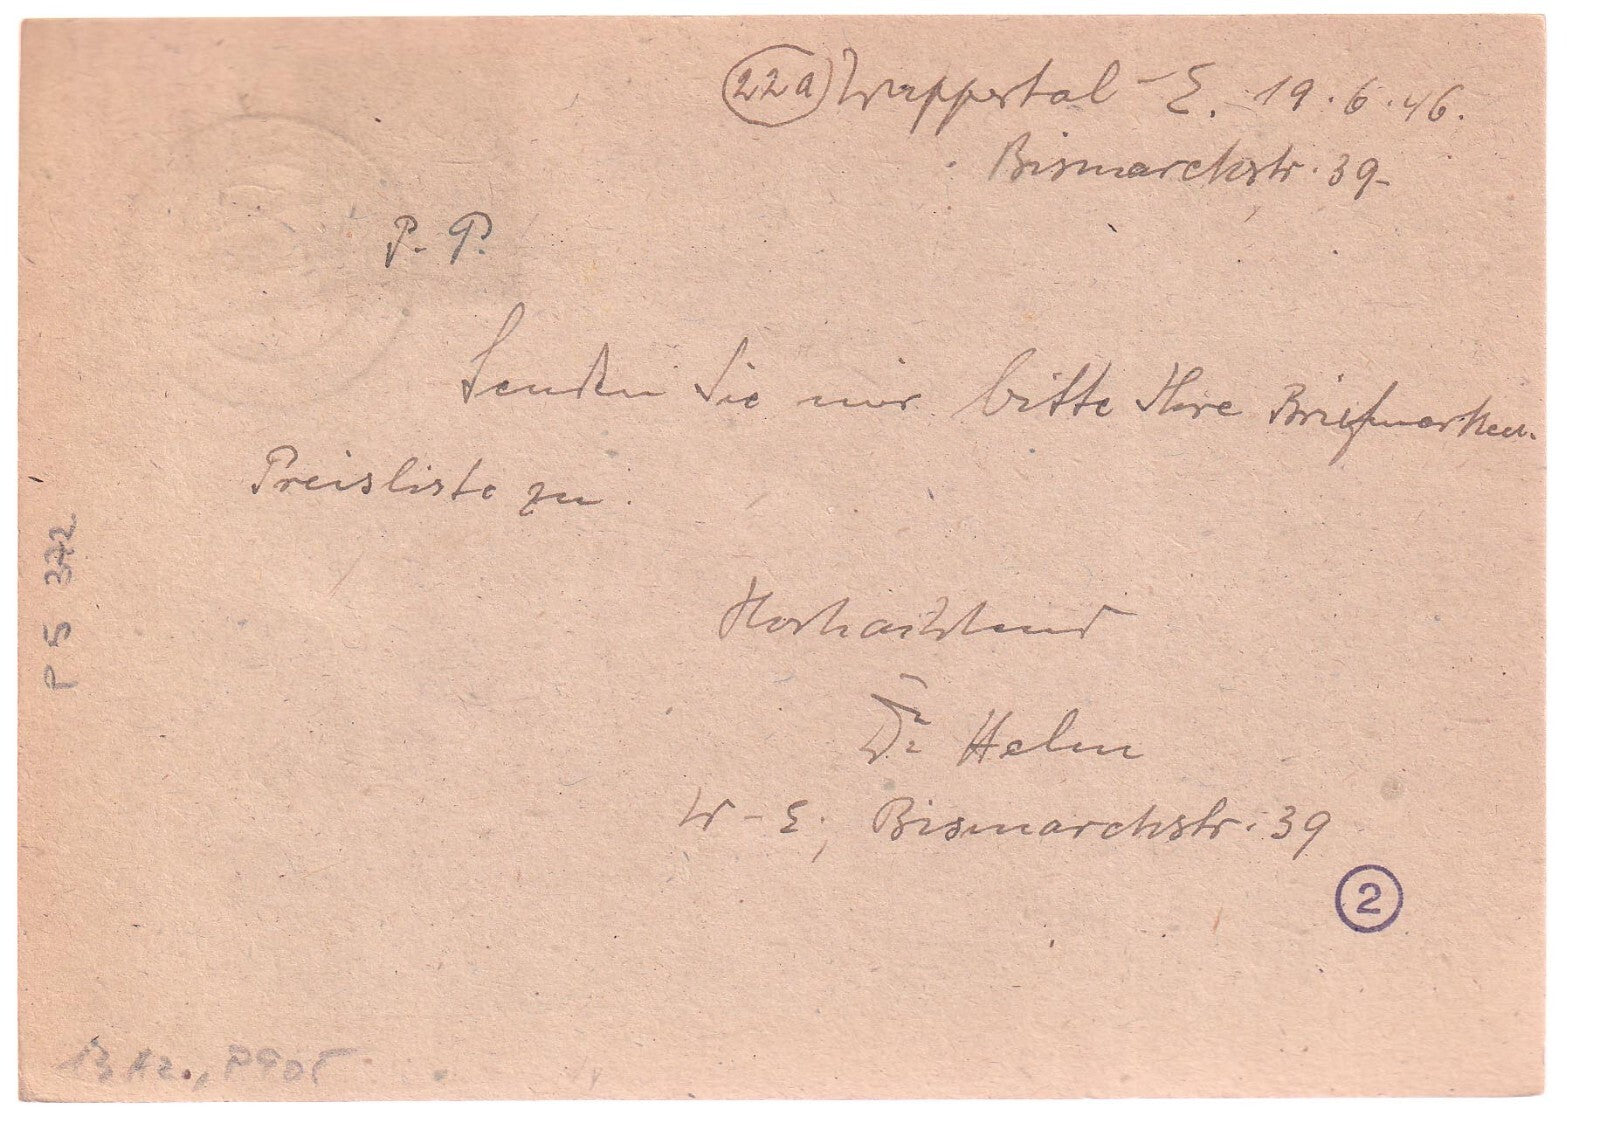 22a Wuppertal-E. 19.6.46.
Bismarckstr. 39-
P. P.
Senden Sie mir bitte Ihre Briefmarken-
Preisliste zu.
Hochachtend
Dr Helm
W-E, Bismarckstr. 39
2
P 5 372
13 Az., P905